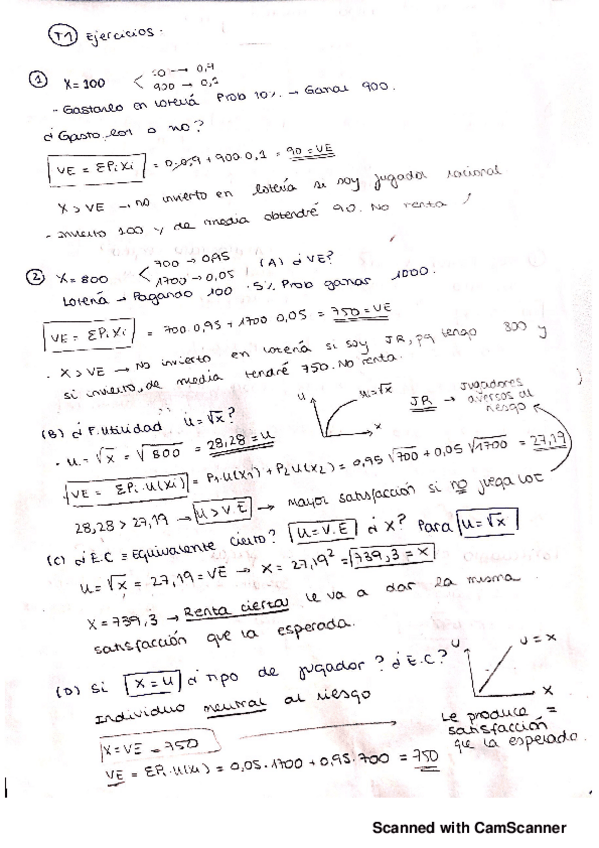 T1 Ejercicios.
① X=100 < 0 → 0,9
900 → 0,1
- Gastarlo en lotería Prob 10% → Ganar 900.
¿Gasto lot o no?
VE = ΣPiXi = 0·0,9 + 900·0,1 = 90 = VE
X > VE → no invierto en lotería si soy jugador racional
- Invierto 100 y de media obtendré 90. No renta
② X=800 < 700 → 0,95
1700 → 0,05 (A) ¿VE?
Lotería → Pagando 100 · 5% Prob ganar 1000.
VE = ΣPiXi = 700·0,95 + 1700·0,05 = 750 = VE
· X > VE → No invierto en lotería si soy JR, pq tengo 800 y
si invierto, de media tendré 750. No renta.
(B) ¿F. Utilidad u=√x? U u=√x x JR → Jugadores
aversos al
riesgo
· u = √x = √800 = 28,28 = u
VE = ΣPi·u(xi) = P1·u(x1) + P2u(x2) = 0,95 √700 + 0,05 √1700 = 27,19
28,28 > 27,19 → u > V.E → mayor satisfacción si no juega lot
(C) ¿E.C = Equivalente cierto? u = V.E ¿X? Para u=√x
u = √x = 27,19 = VE → X = 27,19² = 739,3 = X
X = 739,3 → Renta cierta le va a dar la misma
satisfacción que la esperada.
(D) Si X = u ¿Tipo de jugador? ¿E.C? U u = x X
Individuo neutral al riesgo
X = VE = 750
Le produce =
satisfacción
que la esperado.
VE = ΣPi·u(xi) = 0,05·1700 + 0,95·700 = 750
Scanned with CamScanner